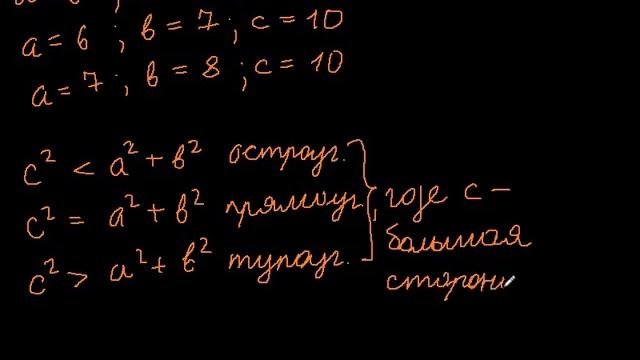 a = 6 ; в = 7 ; c = 10
a = 7 ; в = 8 ; c = 10
c² < a² + в² остроуг.
c² = a² + в² прямоуг.
c² > a² + в² тупоуг.
где c –
большая
сторони